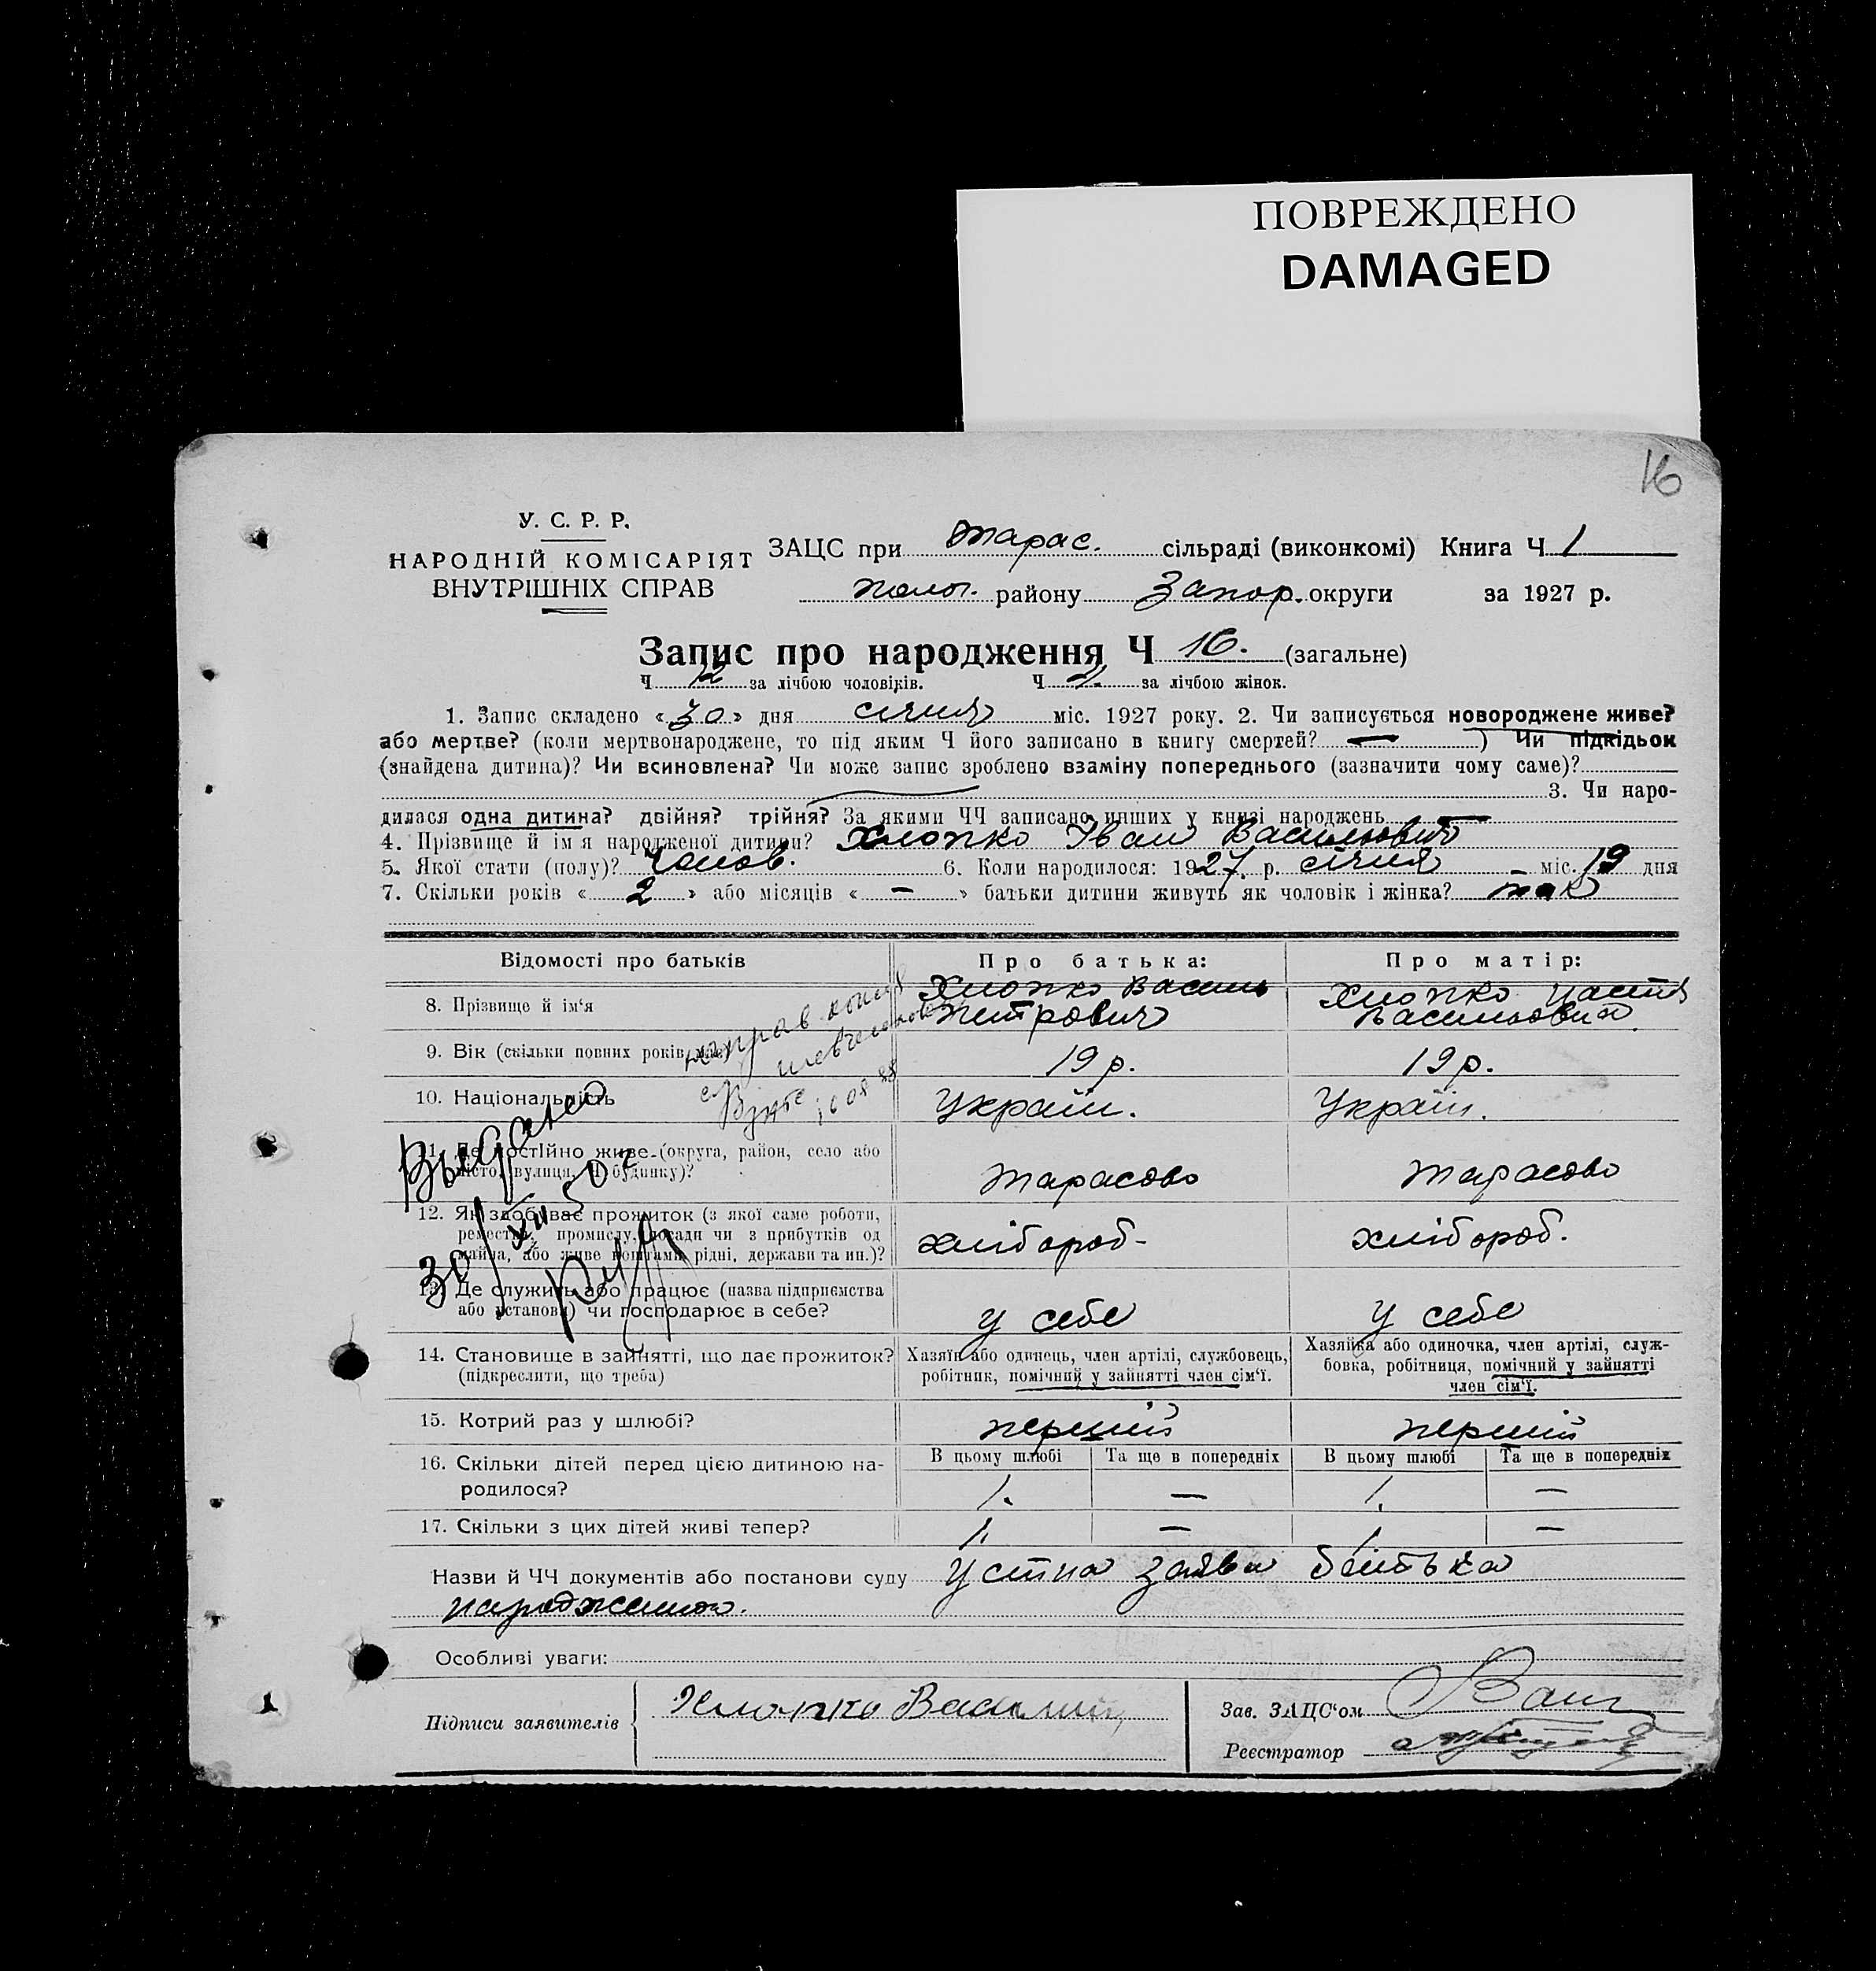 ПОВРЕЖДЕНО
DAMAGED
16
У. С. Р. Р.
НАРОДНІЙ КОМІСАРІЯТ
ВНУТРІШНІХ СПРАВ
ЗАЦС при Тарас. сільраді (виконкомі) Книга Ч 1
Полог. району Запор. округи за 1927 р.
Запис про народження Ч 16. (загальне)
Ч 12 за лічбою чоловіків. Ч за лічбою жінок.
1. Запис складено «30» дня січня міс. 1927 року. 2. Чи записується новороджене живе?
або мертве? (коли мертвонароджене, то під яким Ч його записано в книгу смертей? —) Чи підкідьок
(знайдена дитина)? Чи всиновлена? Чи може запис зроблено взаміну попереднього (зазначити чому саме)?
3. Чи наро-
дилася одна дитина? двійня? трійня? За якими ЧЧ записано инших у книзі народжень —
4. Прізвище й ім'я народженої дитини? Хлопко Іван Васильович
5. Якої стати (полу)? Чолов. 6. Коли народилося: 1927 р. січня міс. 19 дня
7. Скільки років «2» або місяців «—» батьки дитини живуть як чоловік і жінка? так
Відомості про батьків
Про батька:
Про матір:
8. Прізвище й ім'я
Хлопко Василь
Петрович
Хлопко
Васильовна
9. Вік (скільки повних років має)
19 р.
19 р.
10. Національність
Україн.
Україн.
11. Де постійно живе (округа, район, село або
місто, вулиця, Ч будинку)?
Тарасово
Тарасово
12. Як здобуває прожиток (з якої саме роботи,
ремества, промислу, посади чи з прибутків од
майна, або живе коштами рідні, держави та ин.)?
хлібороб-
хлібороб.
13. Де служить або працює (назва підприємства
або установи) чи господарює в себе?
у себе
у себе
14. Становище в зайнятті, що дає прожиток?
(підкреслити, що треба)
Хазяїн або одинець, член артілі, службовець,
робітник, помічний у зайнятті член сім'ї.
Хазяйка або одиночка, член артілі, служ-
бовка, робітниця, помічний у зайнятті
член сім'ї.
15. Котрий раз у шлюбі?
перший
перший
16. Скільки дітей перед цією дитиною на-
родилося?
В цьому шлюбі
Та ще в попередніх
В цьому шлюбі
Та ще в попередніх
1. — 1. —
17. Скільки з цих дітей живі тепер?
1. — 1 —
Выдано
30/XII 50 г
Назви й ЧЧ документів або постанови суду Устна заява батька
народженого.
Особливі уваги:
Підписи заявителів
Хлопко Василий
Зав. ЗАЦС'ом
Реєстратор